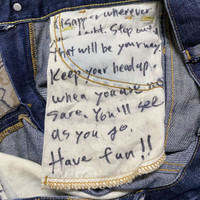 wherever
Step out
that will be your way.
Keep your head up.
when you are no
sare. You'll see
as you go.
Have fun!!